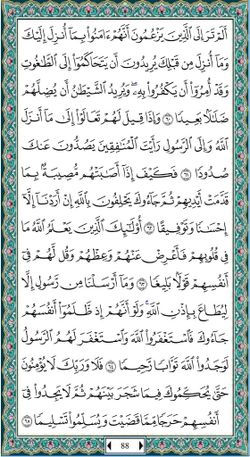 أَلَمْ تَرَ إِلَى ٱلَّذِينَ يَزْعُمُونَ أَنَّهُمْ ءَامَنُوا۟ بِمَآ أُنزِلَ إِلَيْكَ
وَمَآ أُنزِلَ مِن قَبْلِكَ يُرِيدُونَ أَن يَتَحَاكَمُوٓا۟ إِلَى ٱلطَّٰغُوتِ
وَقَدْ أُمِرُوٓا۟ أَن يَكْفُرُوا۟ بِهِۦ وَيُرِيدُ ٱلشَّيْطَٰنُ أَن يُضِلَّهُمْ
ضَلَٰلًۢا بَعِيدًا ٦٠ وَإِذَا قِيلَ لَهُمْ تَعَالَوْا۟ إِلَىٰ مَآ أَنزَلَ
ٱللَّهُ وَإِلَى ٱلرَّسُولِ رَأَيْتَ ٱلْمُنَٰفِقِينَ يَصُدُّونَ عَنكَ
صُدُودًا ٦١ فَكَيْفَ إِذَآ أَصَٰبَتْهُم مُّصِيبَةٌۢ بِمَا
قَدَّمَتْ أَيْدِيهِمْ ثُمَّ جَآءُوكَ يَحْلِفُونَ بِٱللَّهِ إِنْ أَرَدْنَآ إِلَّآ
إِحْسَٰنًا وَتَوْفِيقًا ٦٢ أُو۟لَٰٓئِكَ ٱلَّذِينَ يَعْلَمُ ٱللَّهُ مَا
فِى قُلُوبِهِمْ فَأَعْرِضْ عَنْهُمْ وَعِظْهُمْ وَقُل لَّهُمْ فِىٓ
أَنفُسِهِمْ قَوْلًۢا بَلِيغًا ٦٣ وَمَآ أَرْسَلْنَا مِن رَّسُولٍ إِلَّا
لِيُطَاعَ بِإِذْنِ ٱللَّهِ وَلَوْ أَنَّهُمْ إِذ ظَّلَمُوٓا۟ أَنفُسَهُمْ
جَآءُوكَ فَٱسْتَغْفَرُوا۟ ٱللَّهَ وَٱسْتَغْفَرَ لَهُمُ ٱلرَّسُولُ
لَوَجَدُوا۟ ٱللَّهَ تَوَّابًا رَّحِيمًا ٦٤ فَلَا وَرَبِّكَ لَا يُؤْمِنُونَ
حَتَّىٰ يُحَكِّمُوكَ فِيمَا شَجَرَ بَيْنَهُمْ ثُمَّ لَا يَجِدُوا۟ فِىٓ
أَنفُسِهِمْ حَرَجًا مِّمَّا قَضَيْتَ وَيُسَلِّمُوا۟ تَسْلِيمًا ٦٥
88